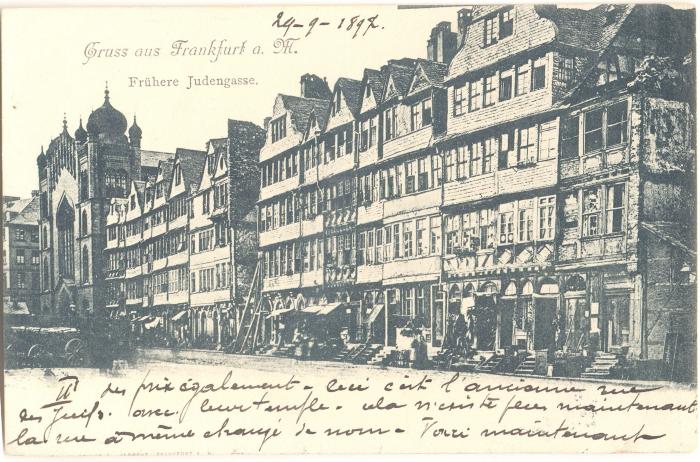 29-9-1897.
Gruss aus Frankfurt a. M.
Frühere Judengasse.
des prix également - ceci c'est l'ancienne rue
des Juifs. avec leur temple - cela n'existe plus maintenant
la rue a même changé de nom - Voici maintenant